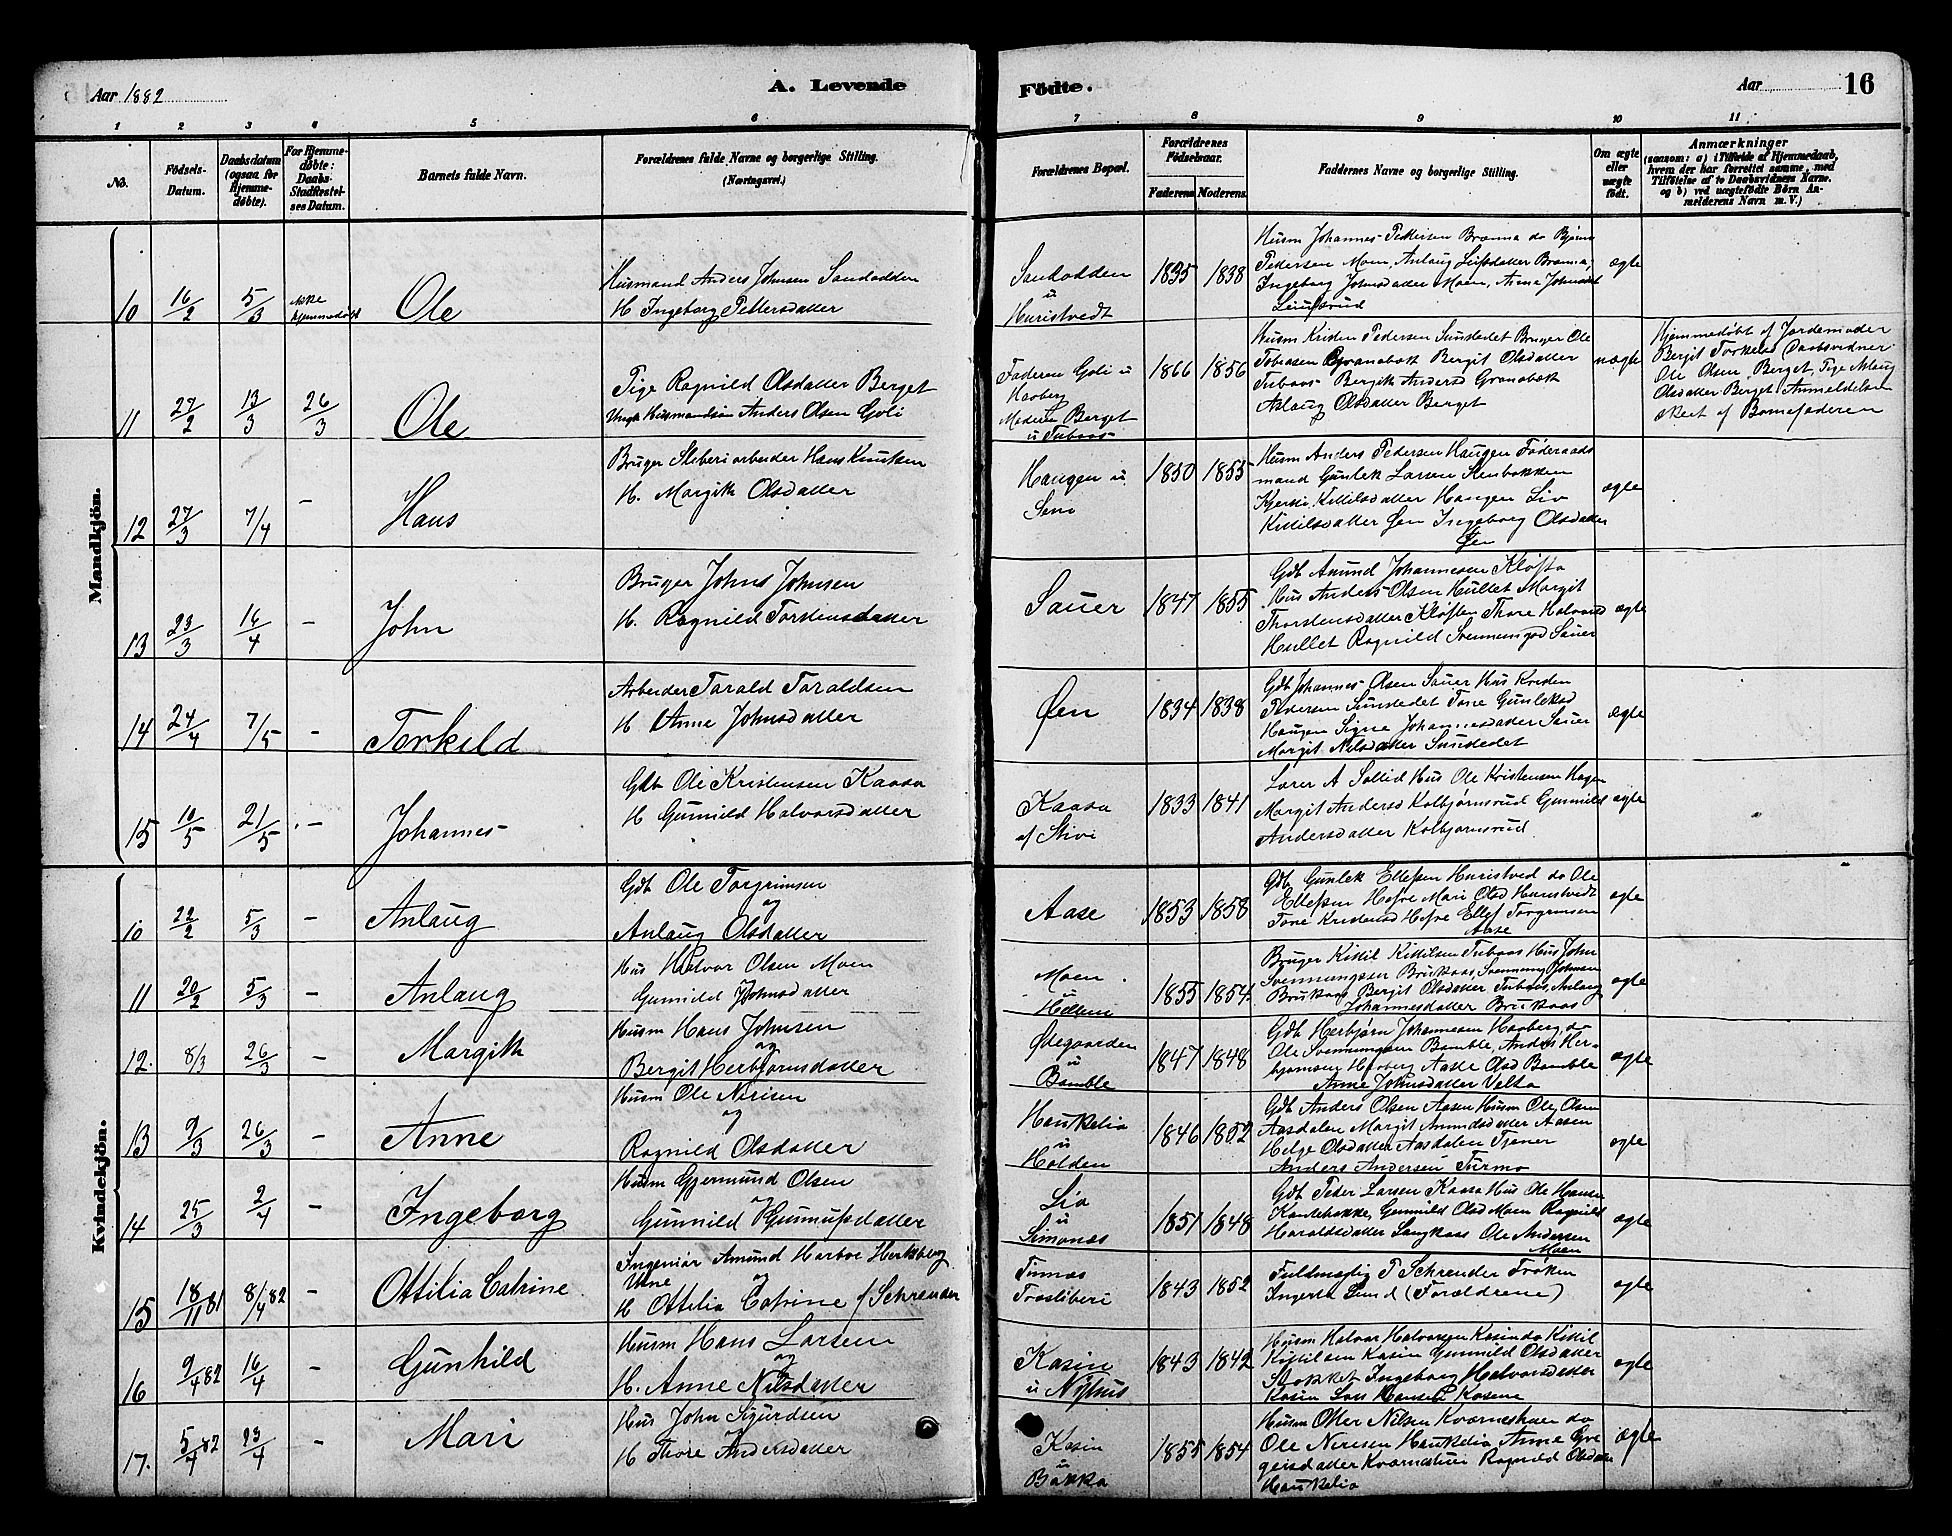 Aar 1882
A. Levende
Födte.
Aar
16
1 2 3 4 5 6 7 8 9 10 11
No.
Födsels-
Datum.
Daabsdatum
(ogsaa for
Hjemme-
døbte).
For Hjemme-
døbte:
Daabs-
Stadfæstel-
ses Datum.
Barnets fulde Navn.
Forældrenes fulde Navne og borgerlige Stilling.
(Næringsvei.)
Forældrenes Bopæl.
Forældrenes
Födselsaar.
Faderens
Moderens
Faddernes Navne og borgerlige Stilling.
Om ægte
eller
uægte
født.
Anmærkninger
(saasom: a) i Tilfælde af Hjemmedaab,
hvem der har forrettet samme, med
Tilföielse af to Daabsvidners Navne.
og b) ved uægtefödte Börn An-
melderens Navn m. V.)
Mandkjön.
10 16/2 5/3 ikke hjemmedøbt Ole
Husmand Anders Johnsen Sandodden
H Ingeborg Pettersdatter
Sandodden
u
Huristvedt
1835 1838
Husm Johannes Pettersen Brænna do Bjørn
Pedersen Moen, Anlaug Leifsdatter Brænna,
Ingeborg Johnsdatter Moen, Anne Johnsdat
ægte
11 27/2 13/3 26/3 Ole
Pige Ragnild Olsdatter Berget
Anders Olsen Goli
Faderen Goli u
Haoberg
Moderen Berget
u Tubaas
1866 1856
Husm Kristen Pedersen Sundedet Bruger Ole
Tobiasen Granabæk Bergit Olsdatter
Tubaas Bergith Andersd Granabæk
Aslaug Olsdatter Berget
uægte
Hjemmedøbt af Jordemoder
Bergit Torkelsd Daabsvidner
Ole Olsen Berget, Pige Aslaug
Olsdatter Berget Anmeldelsen
skeet af Barnefaderen
12 27/3 7/4 - Hans
Bruger Sliberiarbeider Hans Knutsen
H. Margith Olsdatter
Haugen u
Sem
1850 1855
Husm Anders Pedersen Haugen Föderaads
mand Gunlek Larsen Stenbakken
Kjersti Kittilsdatter Haugen Liv
Kittilsdatter Øen Ingeborg Olsdatter
Øen
ægte
13 23/3 16/4 - John
Bruger Johns Johnsen
H. Ragnild Torstensdatter
Sauer
1847 1855
Gdb Amund Johannesen Kløfta
Hus Anders Olsen Hullet Margit
Thorstensdatter Kløften Thore Halvorsd
Hullet Ragnild Svennungsd Sauer
ægte
14 24/4 7/5 - Torkild
Arbeider Tarald Taraldsen
H Anne Johnsdatter
Øen
1834 1838
Gdb Johannes Olsen Sauer Hus Kristen
Pedersen Sundedet Tone Gunleksd
Haugen Signe Johannesdatter Sauer
Margit Nilsdatter Sundedet
ægte
15 10/5 21/5 - Johannes
Gdb Ole Kristensen Kaasa
H Gunnild Halvorsdatter
Kaasa
af Stivi
1833 1841
Lærer A Sollid Hus Ole Kristensen Hagen
Margit Andersd Kolbjørnsrud Gunnild
Andersdatter Kolbjørnsrud.
ægte
Kvindekjön.
10 22/2 5/3 - Anlaug
Gdb Ole Torgrimsen
og
Anlaug Olsdatter
Aase
1853 1858
Gdb Gunlek Ellefsen Huristved do Ole
Ellefsen Hofve Mari Olsd Huristvedt
Tone Kristensd Hofve Ellef Torgrimsen
Aase
ægte
11 20/2 5/3 - Anlaug
Hus Halvor Olsen Moen
Gunnild Johnsdatter
Moen
u
1855 1854
Bruger Kittil Kittilsen Tubaas Hus John
Svennungsen Brukaas, Svennung Johnsen
Brukaas Bergit Olsdatter Tubaas, Anlaug
Johannesdatter Brukaas
ægte
12. 8/3 26/3 - Margith
Husm Hans Johnsen
og
Bergit Herbjørnsdatter
Ødegaarden
u
Bamble
1847 1848
Gdb Herbjørn Johannesen Haaberg, do
Ole Svennungsen Bamble, Anders Her-
bjørnsen Haaberg Aasle Olsd Bamble
Anne Johnsdatter Velta
ægte
13 9/3 26/3 - Anne
Husm Ole Nirisen
og
Ragnild Olsdatter
Haukelia
u
Holden
1846 1852
Gdb Anders Olsen Aasen Husm Ole Olsen
Aasdalen Margit Amundsdatter Aasen
Helge Olsdatter Aasdalen Tjener
Anders Andersen Turmo
ægte
14 25/3 2/4 - Ingeborg
Husm Gjermund Olsen
og
Gunnild Gunnufsdatter
Lia
u
Simonæs
1851 1848
Gdb Peder Larsen Kaasa Hus Ole Hansen
Kastebakke, Gunnild Olsd Moen Ragnild
Haraldsdatter Langkaas Ole Andersen
Moen
ægte
15 18/11 81 8/4 82 - Ottilia Catrine
Ingeniør Amund Harboe Hertzberg
Utne og
H Ottilia Catrine f Schrøder
Tinnæs
Træsliberi
1843 1852
Fuldmægtig P Schrøder Frøken
Ingerta Lund (Forældrene)
ægte
16 9/4 82 16/4 - Gunhild
Husm Hans Larsen
og
H. Anne Nilsdatter
Kasin
u Nyhus
1843 1842
Husm Halvor Halvorsen Kasin do Kittil
Kittilsen Kasin Gunnild Olsdatter
Stokket Ingeborg Halvorsdatter
Kasin Lars Hansen Kasene
ægte
17. 5/4 82 23/4 - Mari
Hus John Sigurdsen
og
H Thore Andersdatter
Kasin
u
Bakka
1855 1854
Husm Otter Nilsen Kværneshaen do
Ole Nerisen Haukelia, Anne Gre
geisdatter Ragnild Olsdatter
Haukelia
ægte